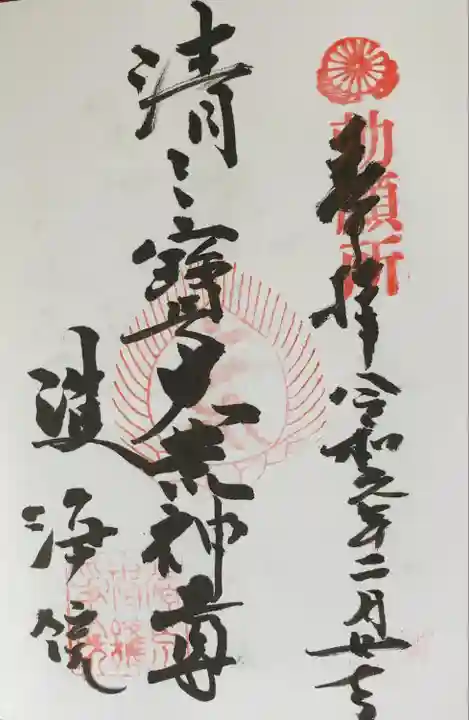 勅願所
奉拝 令和元年二月廿
清三寳大荒神尊
護浄院